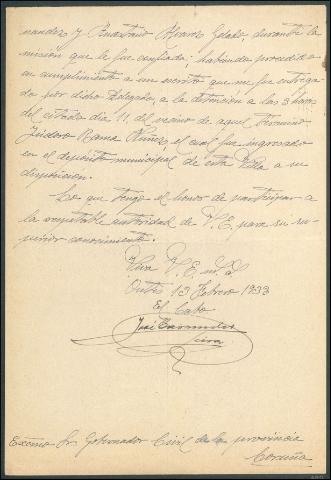 nandez y Anastasio Alvarez Gelado, durante la
mision que le fue confiada; habiendo procedido
en cumplimiento a un escrito que me fue entrega
do por dicho Delegado, a la detencion a las 3 horas
del citado dia 11, del vecino de aquel termino
Isidoro Rama Nuñez, el cual fue ingresado
en el deposito municipal de esta Villa a su
disposicion.
Lo que tengo el honor de participar a
la respetable autoridad de V.E. para su su-
perior conocimiento.
Viva V.E. m. a.
Outes 13 Febrero 1933
El Cabo
José
Excmo Sr. Gobernador Civil de la provincia
Coruña